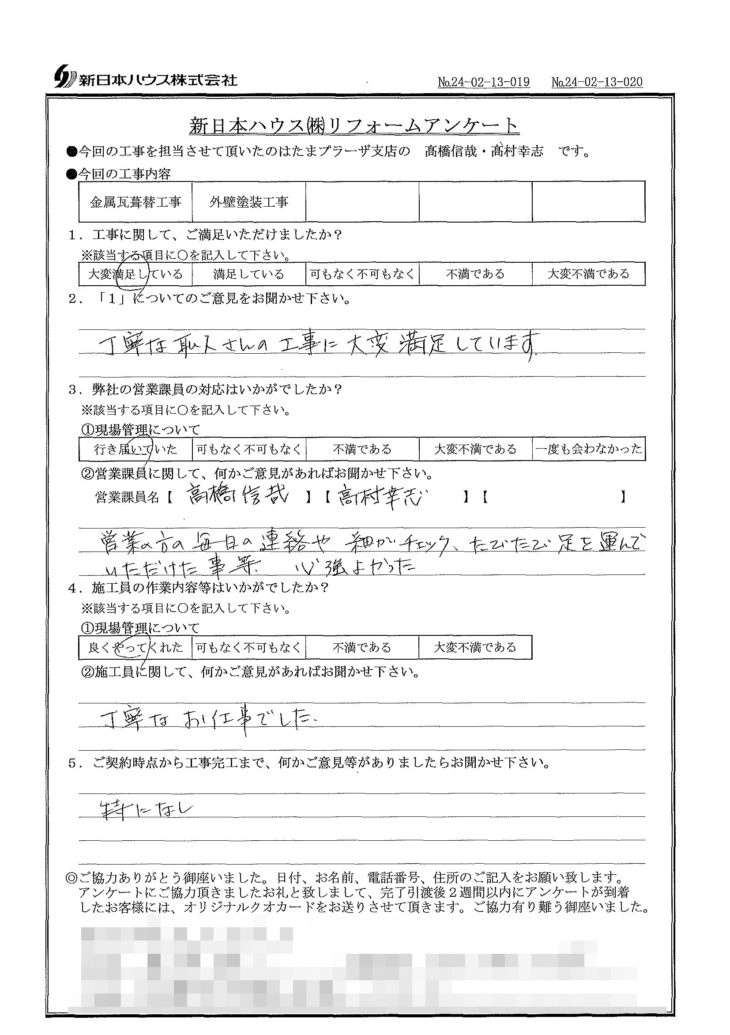 新日本ハウス株式会社 №24-02-13-019 №24-02-13-020
新日本ハウス㈱リフォームアンケート
●今回の工事を担当させて頂いたのはたまプラーザ支店の 髙橋信哉・髙村幸志 です。
●今回の工事内容
金属瓦葺替工事 外壁塗装工事
1．工事に関して、ご満足いただけましたか？
※該当する項目に○を記入して下さい。
大変満足している 満足している 可もなく不可もなく 不満である 大変不満である
2．「1」についてのご意見をお聞かせ下さい。
丁寧な職人さんの工事に大変満足しています
3．弊社の営業課員の対応はいかがでしたか？
※該当する項目に○を記入して下さい。
①現場管理について
行き届いていた 可もなく不可もなく 不満である 大変不満である 一度も会わなかった
②営業課員に関して、何かご意見があればお聞かせ下さい。
営業課員名【 高橋信哉 】【 高村幸志 】【 】
営業の方の毎日の連絡や 細かチェック、たびたび足を運んで
いただけた事等 心強よかった
4．施工員の作業内容等はいかがでしたか？
※該当する項目に○を記入して下さい。
①現場管理について
良くやってくれた 可もなく不可もなく 不満である 大変不満である
②施工員に関して、何かご意見があればお聞かせ下さい。
丁寧なお仕事でした.
5．ご契約時点から工事完工まで、何かご意見等がありましたらお聞かせ下さい。
特になし
◎ご協力ありがとう御座いました。日付、お名前、電話番号、住所のご記入をお願い致します。
アンケートにご協力頂きましたお礼と致しまして、完了引渡後2週間以内にアンケートが到着
したお客様には、オリジナルクオカードをお送りさせて頂きます。ご協力有り難う御座いました。